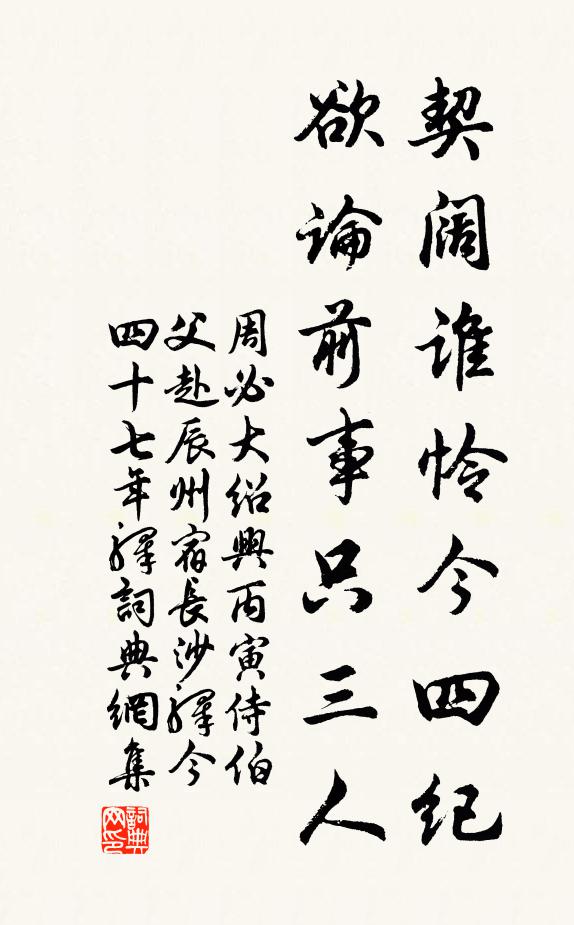 契阔谁怜今四纪
欲論前事只三人
周必大绍興丙寅侍伯
父赴辰州宿長沙驛今
四十七年驛詞典網集
詞典
网印